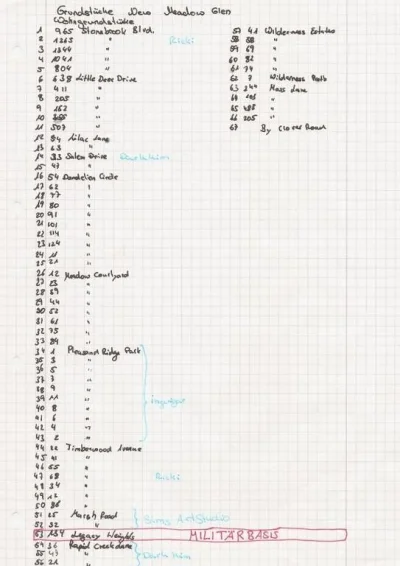 Grundstücke New Meadow Glen
Wohngrundstücke
1 965 Stonebook Blvd.
2 1263 " Ricki
3 1344 "
4 1041 "
5 804 "
6 638 Little Deer Drive
7 411 "
8 205 "
9 162 "
10 "
11 507 "
12 84 Lilac Lane
13 63 "
14 33 Salem Drive
15 47 "
16 54 Dandelion Circle
17 62 "
18 77 "
19 80 "
20 91 "
21 101 "
22 114 "
23 124 "
24 11 "
25 21 "
26 12 Meadow Courtyard
27 23 "
28 29 "
29 44 "
30 52 "
31 61 "
32 75 "
33 89 "
34 1 Pleasant Ridge Park
35 3 "
36 5 "
37 7 "
38 9 "
39 11 "
40 8 "
41 6 "
42 4 "
43 2 "
44 22 Timberwood Avenue
45 41 "
46 55 "
47 68 " Ricki
48 34 "
49 12 "
50 86 "
51 25 Marsh Road
52 32 " Sims Art Studio
53 134 Legacy MILITÄRBASIS
54 36 Rapid Creek Lane
55 47 "
56 21 "
57 41 Wilderness Estates
58 58 "
59 69 "
60 82 "
61 74 "
62 7 Wilderness Path
63 344 Moss Lane
64 "
65 "
66 205 "
67 By Clover Road